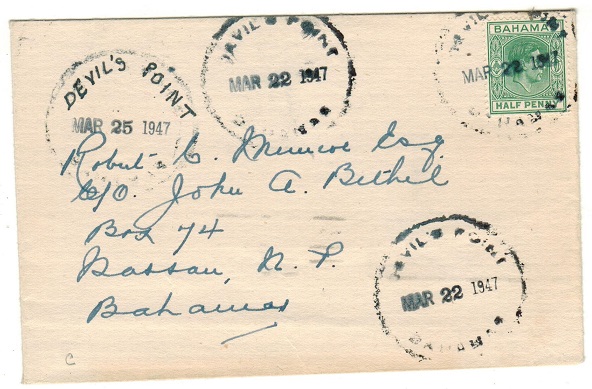 DEVIL'S POINT
MAR 25 1947
DEVIL'S POINT
MAR 22 1947
BAHAMAS
DEVIL'S POINT
MAR 22 1947
BAHAMAS
BAHAMAS
HALF PENNY
Robert C. Munroe Esq.
C/O. John A. Bethel
Box 74
Nassau, N. P.
Bahamas
DEVIL'S POINT
MAR 22 1947
BAHAMAS
C